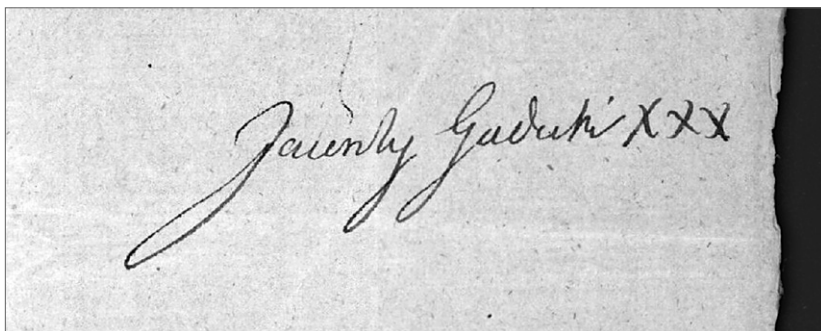 Jacenty Gaducki XXX